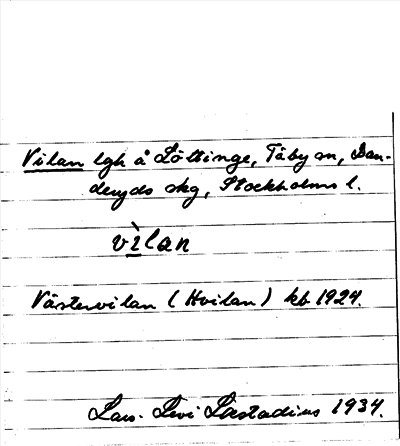 Vilan lgh å Löttinge, Täby sn, Dan-
deryds skg, Stockholms l.
vìlan
Västervilan (Hvilan) kb 1924.
Lars-Levi Læstadius 1934.